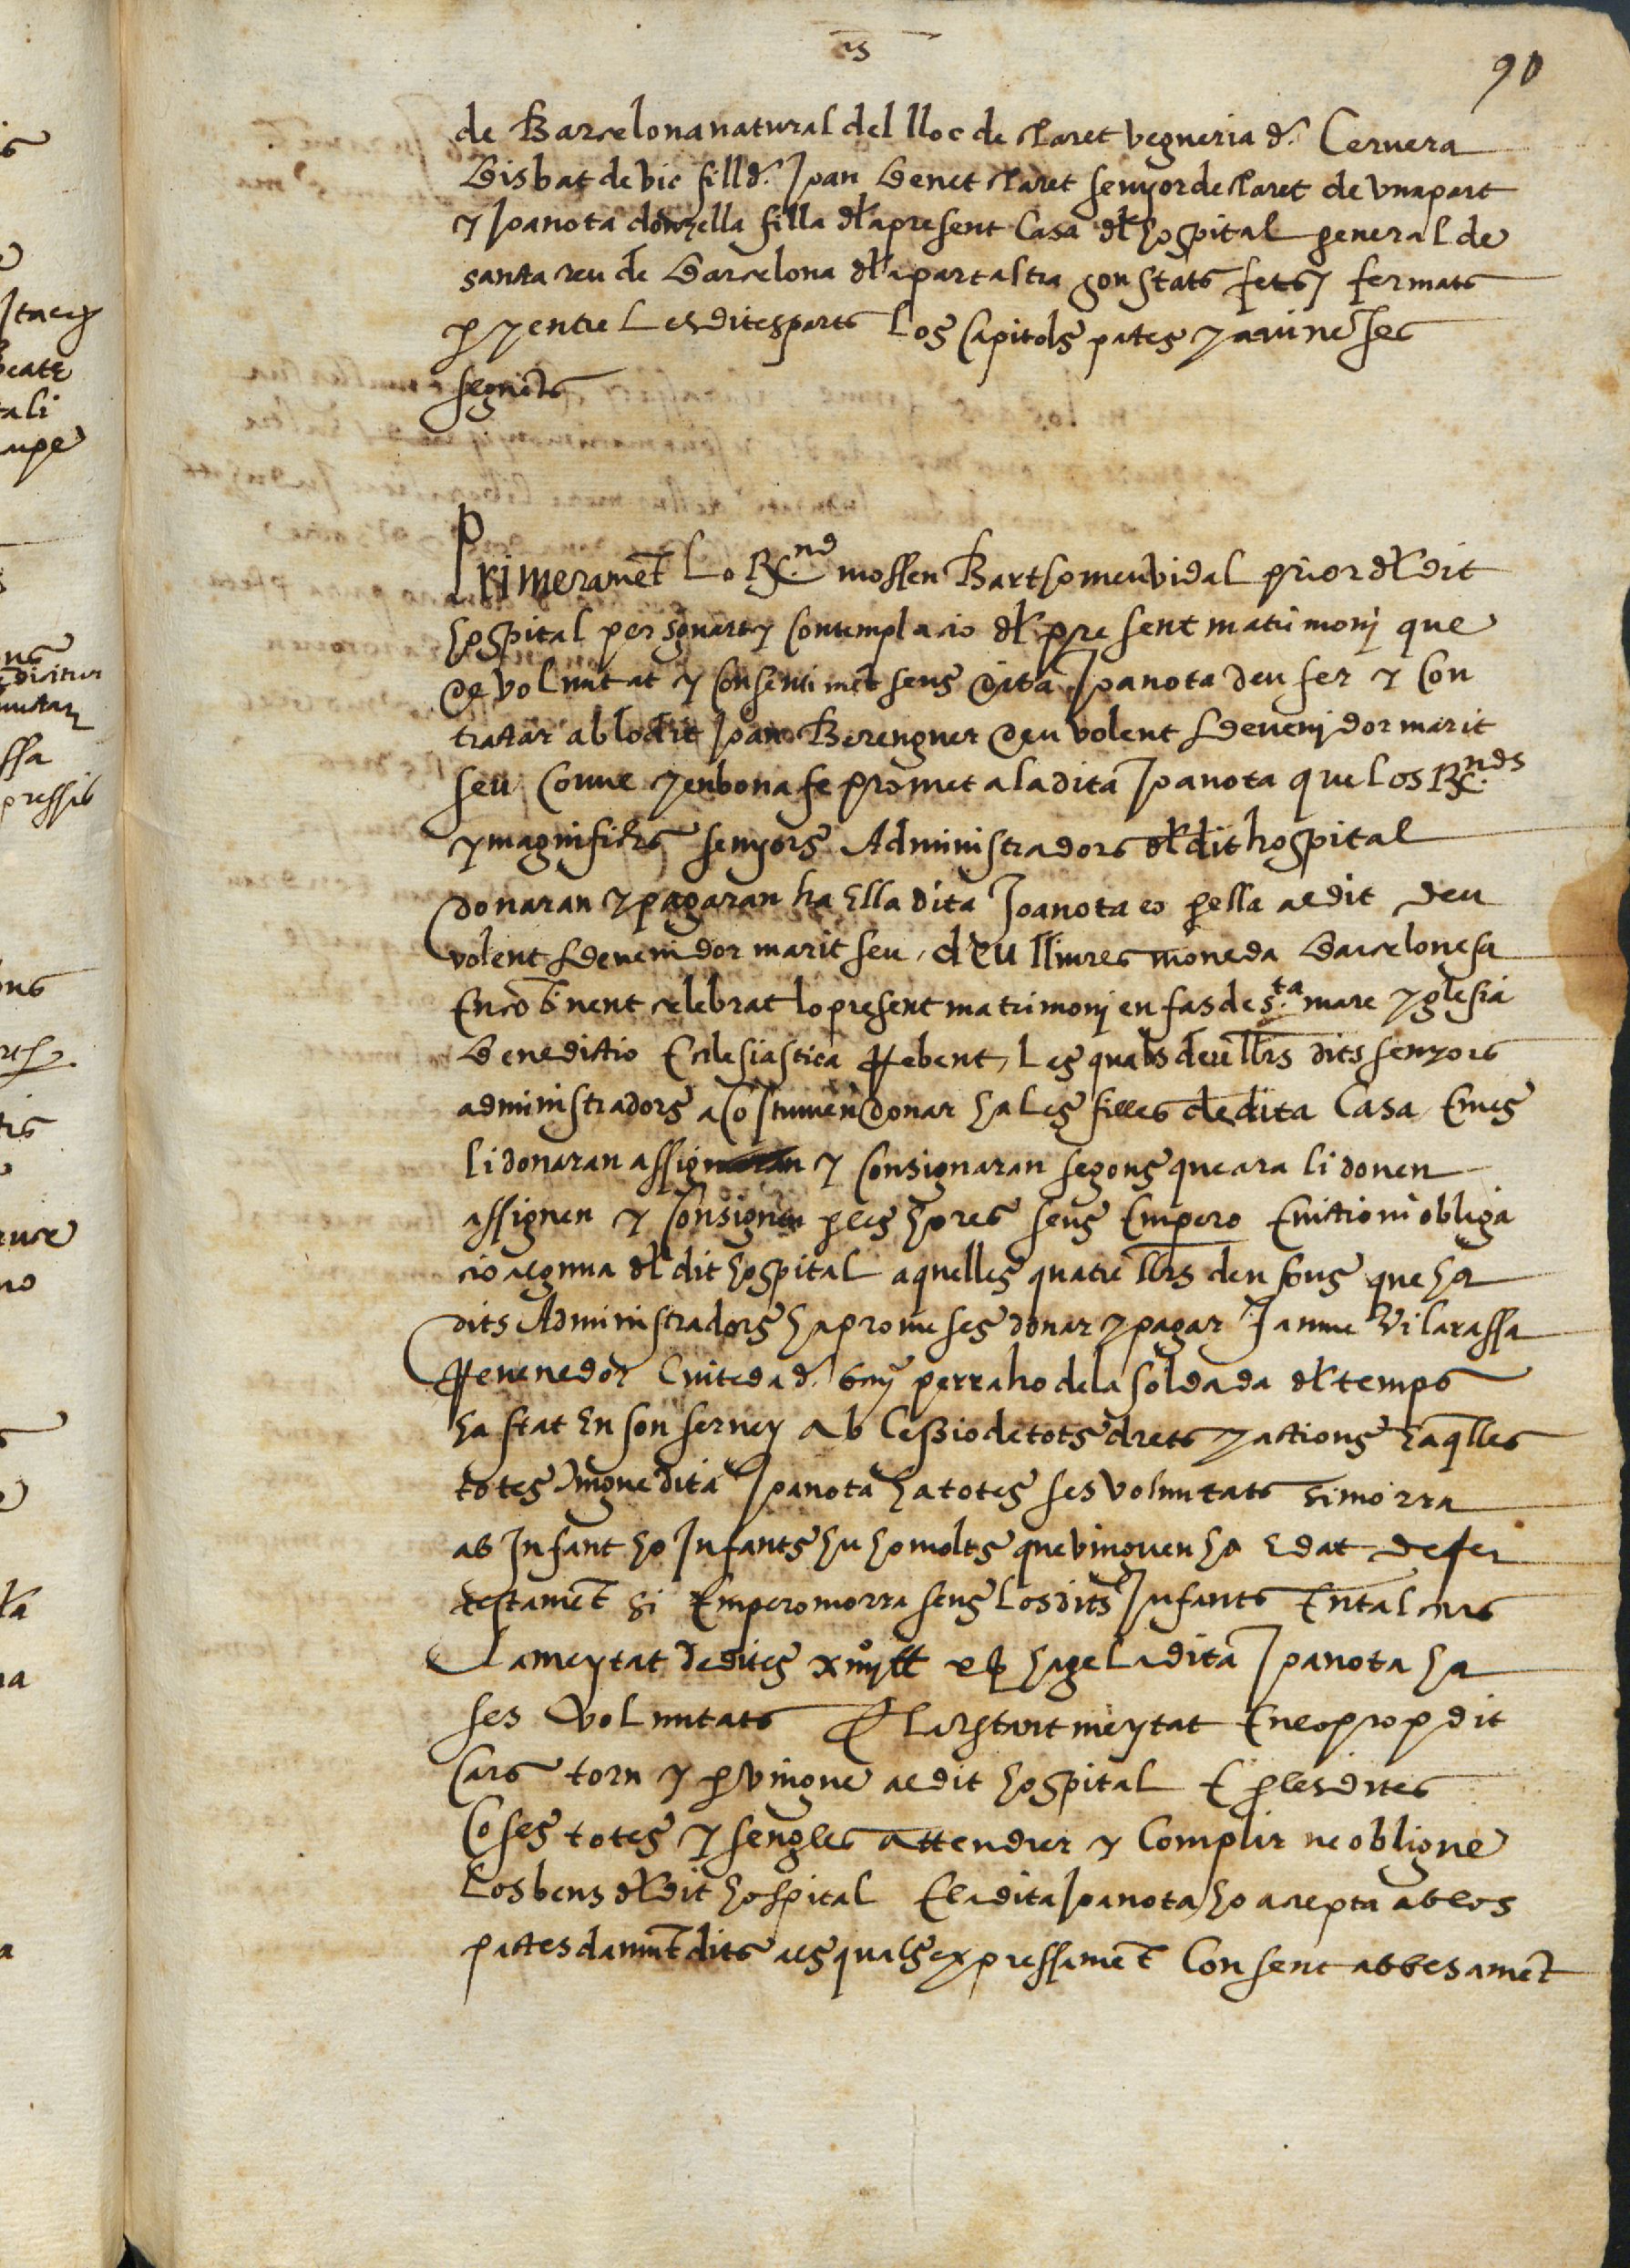 90
de Barcelona natural del lloc de claret vegueria d. Cervera
Bisbat de vic fill d. Joan Benet claret senyor de claret de una part
y Joanota donzella filla dla present Casa dl hospital general de
santa creu de Barcelona dla part altra son stats fets y fermats
p y entre Les dites parts Los Capitols pactes y avineses
seguets
Primeramet Lo Rnd mossen Barthomeu vidal prior dl dit
hospital per sguart y Contemplacio dl present matrimoni que
de voluntat y Consentimet seus dita Joanota deu fer y Con
tractar ab lo dit Joan Berenguer deu volent sdevenidor marit
seu Conve y en bona fe promet a la dita Joanota que Los Rnds
y magnifichs senyors Administradors dl dit hospital
donaran y pagaran ha Ella dita Joanota eo p ella al dit deu
volent sdevenidor marit seu, deu lliures moneda Barcelonesa
Encotinent celebrat lo present matrimoni en fas de sta mare yglesia
Benedictio Ecclesiastica Rebent, Les quals deu llrs dits senyors
administradors acostumen donar ha Les filles de dita Casa Emes
li donaran assignaran y Consignaran segons que ara li donen
assignen y Consignen ples hores sens Empero Evictio ni obliga
cio alguna dl dit hospital aquelles quatre llrs den sous que ha
dits Administradors ha promeses donar y pagar Jaume Vilarassa
Revenedor Ciuteda d. perraho de la soldada dl temps
ha stat En son servey Ab Cessio de tots drets y actions haqlles
totes vingue dita Joanota ha totes ses voluntats si morra
ab Infant ho Infants hu ho molts que vinguen ha Edat de fer
testamet si Empero morra sens Los dits Infants En tal cars
La meytat de dites hage La dita Joanota ha
ses Voluntats E La Restant meytat En lo prop dit
Cars torn y pvingue al dit hospital E ples dites
Coses totes y sengles attendrer y Complir ne obligue
Los bens dl dit hospital E la dita Joanota ho accepta ab los
pactes damutdits als quals expressamet Consent ab besamet